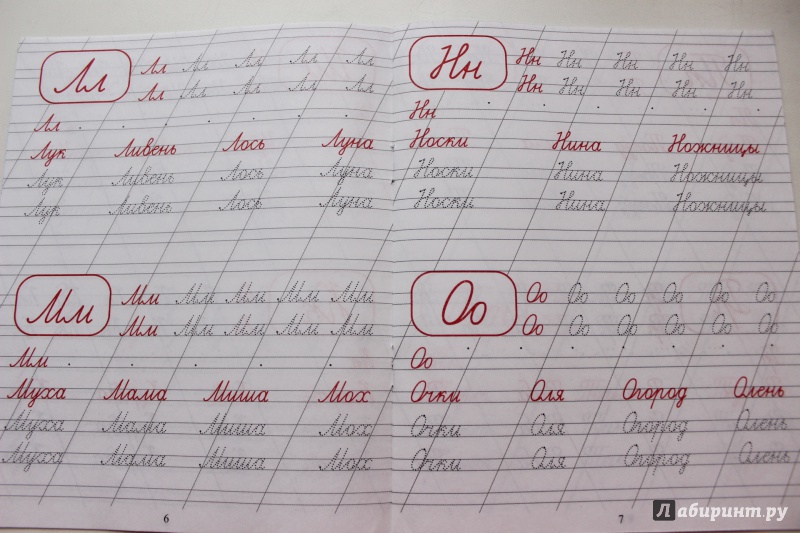 Лл Лл Лл Лл Лл Лл
Лл Лл Лл Лл Лл
Лл
Лук Ливень Лось Луна
Лук Ливень Лось Луна
Лук Ливень Лось Луна
Мм Мм Мм Мм Мм Мм
Мм Мм Мм Мм Мм
Мм
Муха Мама Миша Мох
Муха Мама Миша Мох
Муха Мама Миша Мох
6
Нн Нн Нн Нн Нн Нн
Нн Нн Нн Нн Нн
Нн
Носки Нина Ножницы
Носки Нина Ножницы
Носки Нина Ножницы
Оо Оо Оо Оо Оо Оо Оо
Оо Оо Оо Оо Оо Оо
Оо
Очки Оля Огород Олень
Очки Оля Огород Олень
Очки Оля Огород Олень
7
Лабиринт.ру